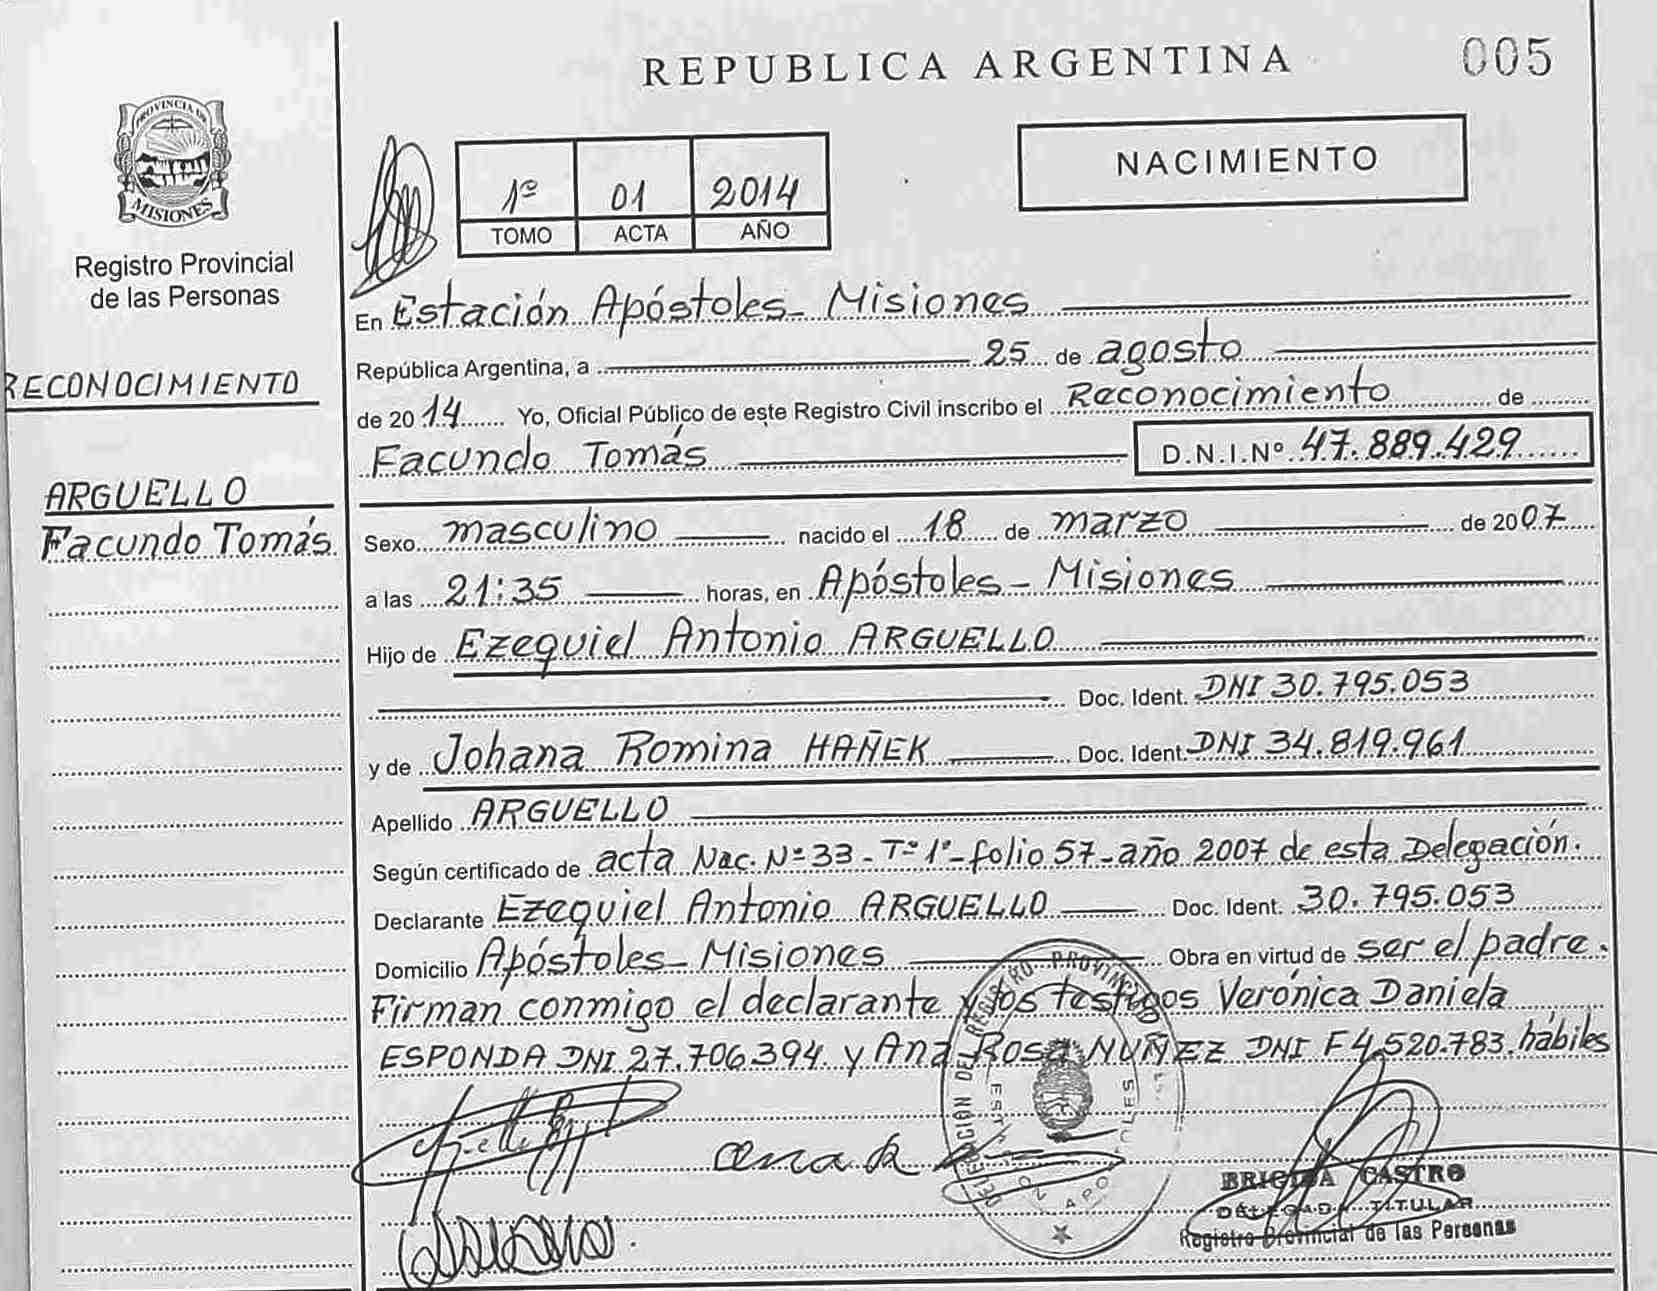 REPUBLICA ARGENTINA
005
PROVINCIA DE
MISIONES
Registro Provincial
de las Personas
RECONOCIMIENTO
ARGUELLO
Facundo Tomás
1º 01 2014
TOMO ACTA AÑO
NACIMIENTO
En Estación Apóstoles - Misiones
República Argentina, a 25 de agosto
de 2014 Yo, Oficial Público de este Registro Civil inscribo el Reconocimiento de
Facundo Tomás D.N.I.Nº 47.889.429
Sexo masculino nacido el 18 de marzo de 2007
a las 21:35 horas, en Apóstoles - Misiones
Hijo de Ezequiel Antonio ARGUELLO
Doc. Ident. DNI 30.795.053
y de Johana Romina HAÑEK Doc. Ident. DNI 34.819.961
Apellido ARGUELLO
Según certificado de acta Nac. Nº 33 - Tº 1º - folio 57 - año 2007 de esta Delegación.
Declarante Ezequiel Antonio ARGUELLO Doc. Ident. 30.795.053
Domicilio Apóstoles - Misiones Obra en virtud de ser el padre.
Firman conmigo el declarante y los testigos Verónica Daniela
ESPONDA DNI 27.706.394 y Ana Rosa NUÑEZ DNI F4.520.783. hábiles
DELEGACIÓN DEL REGISTRO PROVINCIAL
BRIGIDA CASTRO
DELEGADA TITULAR
Registro Provincial de las Personas